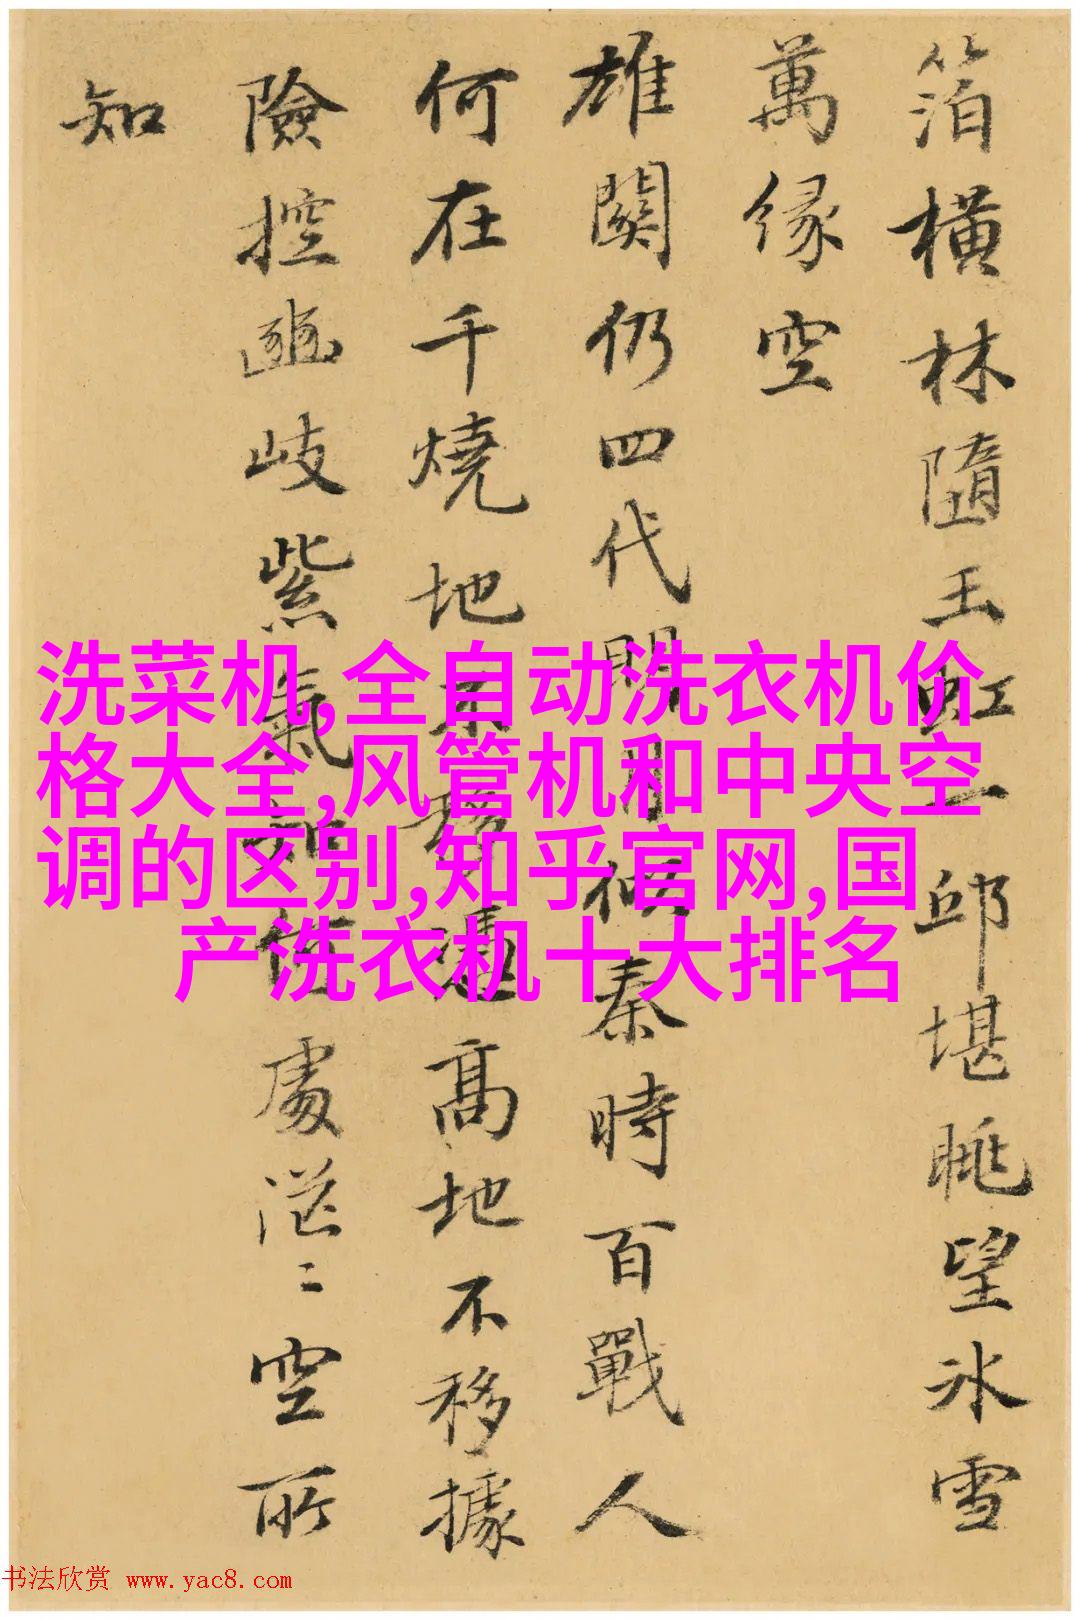 箔橫林隨玉虹一邱堪眺望冰雪
萬緣空
雄關仍四代明月似秦時百戰人
何在千燒地不移據高地不移據
險控豳岐紫氣知何處茫〻空所
知
洗菜机,全自动洗衣机价
格大全,风管机和中央空
调的区别,知乎官网,国
产洗衣机十大排名
书法欣赏 www.yac8.com